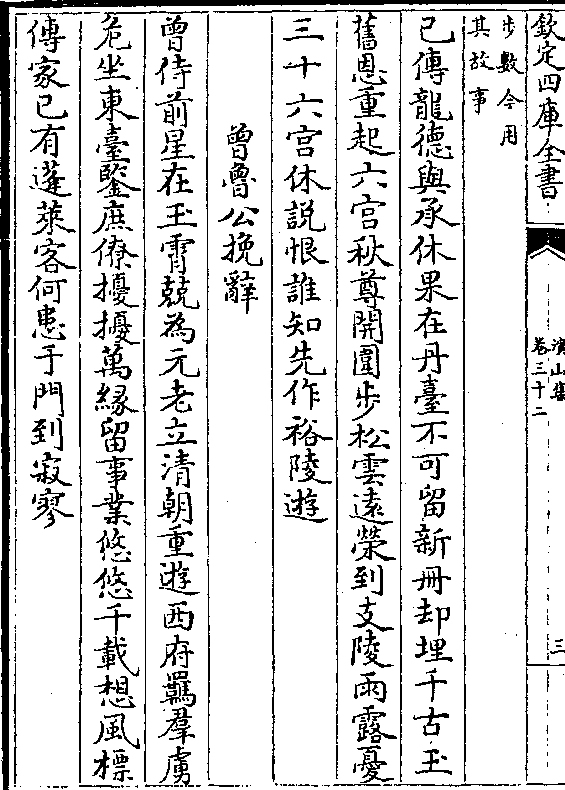 欽定四庫全書
濆山集
卷三十二
三
步數今用
其故事
已傳龍德與承休果在丹臺不可留新冊却埋千古玉
舊恩重起六宮秋尊開園步松雲遠榮到支陵雨露憂
三十六宮休説恨誰知先作裕陵遊
曾魯公挽辭
曾侍前星在玉霄兢為元老立清朝重遊西府羈羣虜
危坐東臺鑒庶僚擾擾萬緣留事業悠悠千載想風標
傳家已有蓬萊客何患于門到寂寥